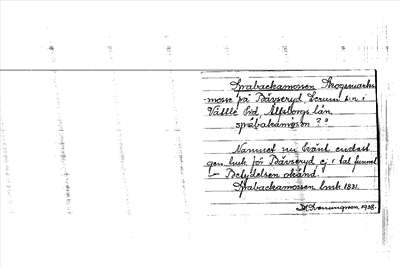 Sprabackamossen Skogsmarks
mosse på Bävseryd, Lerum sn i
Vättle hd, Älfsborgs län.
språbakamosən ? ?
Namnet nu känt endast
gen. bok. för Bävseryd ej i tal funnet
– Betydelsen okänd.
Sprabackamossen lmk. 1831.
1928.